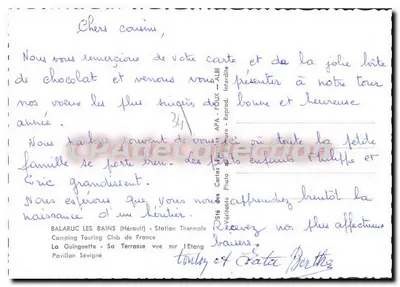 Chers cousins,
Nous vous remerçions de votre carte et de la jolie boîte
de chocolat et venons vous présenter à notre tour
nos voeux les plus sincères de bonne et heureuse
année.
Nous parlons souvent de vous ici où toute la petite
famille se porte bien. Les petits enfants Philippe et
Eric grandissent.
Nous espérons que vous nous apprendrez bientôt la
naissance d'un héritier.
Recevez nos plus affectueux
baisers.
et Berthe
BALARUC LES BAINS (Hérault) - Station Thermale
Camping Touring Club de France
La Guinguette - Sa Terrasse vue sur l'Etang
Pavillon Sévigné
Sté des Cartes APA - POUX - ALBI
Véritable Photo - Reprod. Interdite